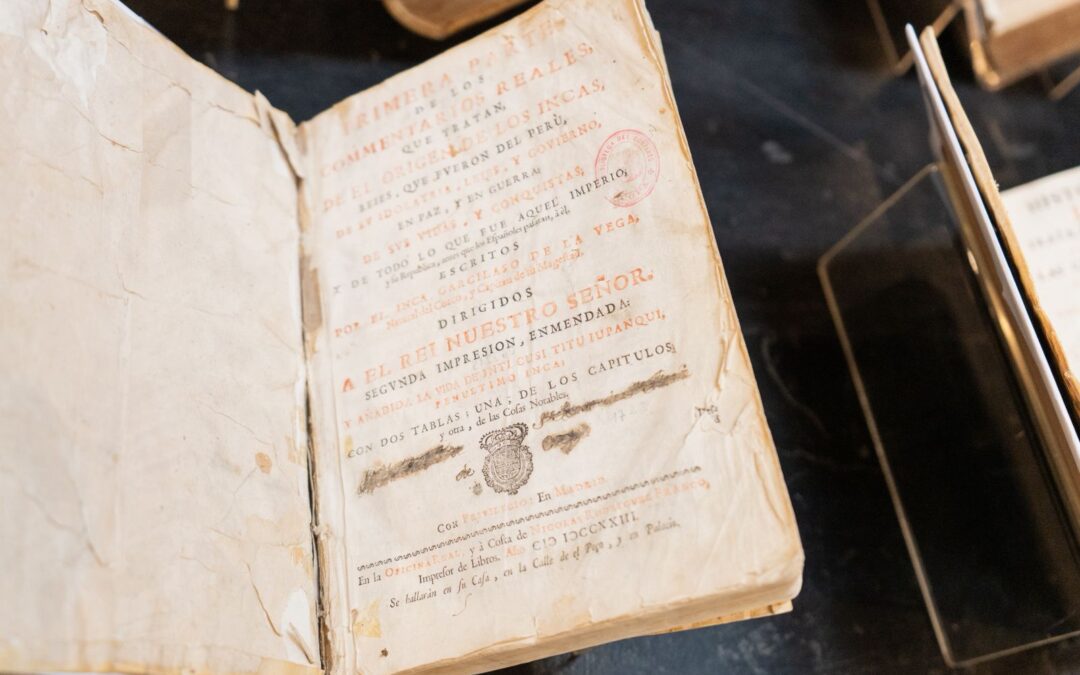 PRIMERA PARTE
DE LOS
COMMENTARIOS REALES,
QUE TRATAN,
DE EL ORIGEN DE LOS INCAS,
REIES, QUE FVERON DEL PERÙ,
DE SV IDOLATRIA, LEIES, Y GOVIERNO,
EN PAZ, Y EN GUERRA:
DE SVS VIDAS, Y CONQUISTAS,
Y DE TODO LO QUE FUE AQUEL IMPERIO,
y su Republica, antes que los Españoles pasaran, à èl,
ESCRITOS
POR EL INCA GARCILASO DE LA VEGA,
Natural del Cozco, y Capitan de su Magestad.
DIRIGIDOS
A EL REI NUESTRO SEÑOR.
SEGVNDA IMPRESION, ENMENDADA:
Y AÑADIDA LA VIDA DE INTI CUSI TITU IUPANQUI,
PENULTIMO INCA:
CON DOS TABLAS; UNA, DE LOS CAPITULOS,
y otra, de las Cosas Notables.
de
CON PRIVILEGIO: En MADRID.
En la OFICINA REAL, y à Costa de NICOLAS RODRIGUEZ FRANCO,
Impresor de Libros. Año CIƆ IƆCCXXIII.
Se hallaràn en su Casa, en la Calle de el Poço, y en Palacio.